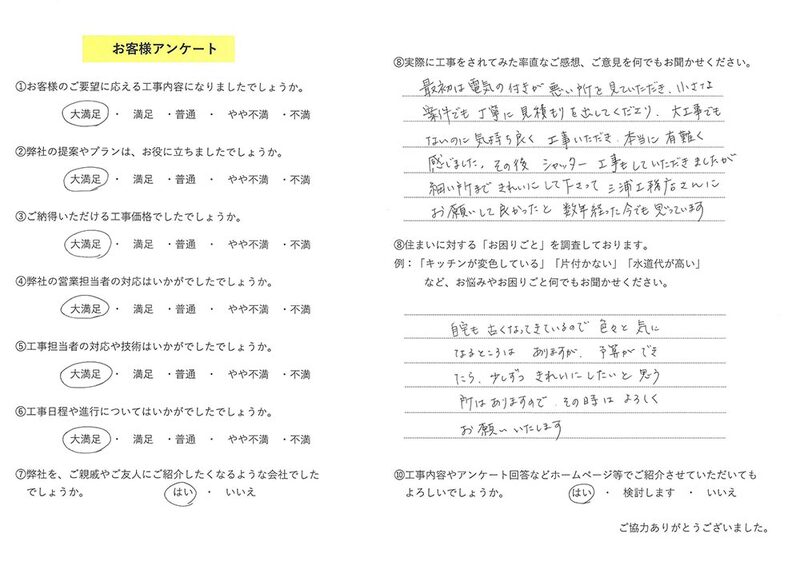 お客様アンケート
①お客様のご要望に応える工事内容になりましたでしょうか。
大満足 ・ 満足 ・普通 ・ やや不満 ・不満
②弊社の提案やプランは、お役に立ちましたでしょうか。
大満足 ・ 満足 ・普通 ・ やや不満 ・不満
③ご納得いただける工事価格でしたでしょうか。
大満足 ・ 満足 ・普通 ・ やや不満 ・不満
④弊社の営業担当者の対応はいかがでしたでしょうか。
大満足 ・ 満足 ・普通 ・ やや不満 ・不満
⑤工事担当者の対応や技術はいかがでしたでしょうか。
大満足 ・ 満足 ・普通 ・ やや不満 ・不満
⑥工事日程や進行についてはいかがでしたでしょうか。
大満足 ・ 満足 ・普通 ・ やや不満 ・不満
⑦弊社を、ご親戚やご友人にご紹介したくなるような会社でした
でしょうか。 はい ・ いいえ
⑧実際に工事をされてみた率直なご感想、ご意見を何でもお聞かせください。
最初は電気の付きが悪い所を見ていただき、小さな
案件でも丁寧に見積もりを出してくださり、大工事でも
ないのに気持ち良く工事いただき、本当に有難く
感じました。その後 シャッター工事もしていただきましたが
細い所まできれいにして下さって 三浦工務店さんに
お願いして良かったと 数年経った今でも思っています
⑧住まいに対する「お困りごと」を調査しております。
例：「キッチンが変色している」「片付かない」「水道代が高い」
など、お悩みやお困りごと何でもお聞かせください。
自宅も古くなってきているので色々と気に
なるところは ありますが、予算ができ
たら、少しずつ きれいにしたいと思う
所はありますので、その時は よろしく
お願いいたします
⑩工事内容やアンケート回答などホームページ等でご紹介させていただいても
よろしいでしょうか。 はい ・ 検討します ・ いいえ
ご協力ありがとうございました。